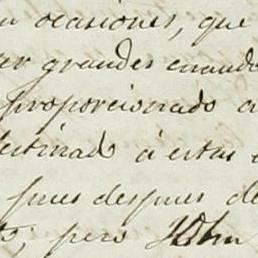 ocasiones, que
grandes cuando
proporcionado a
destinado á estas
pues despues de
pero John